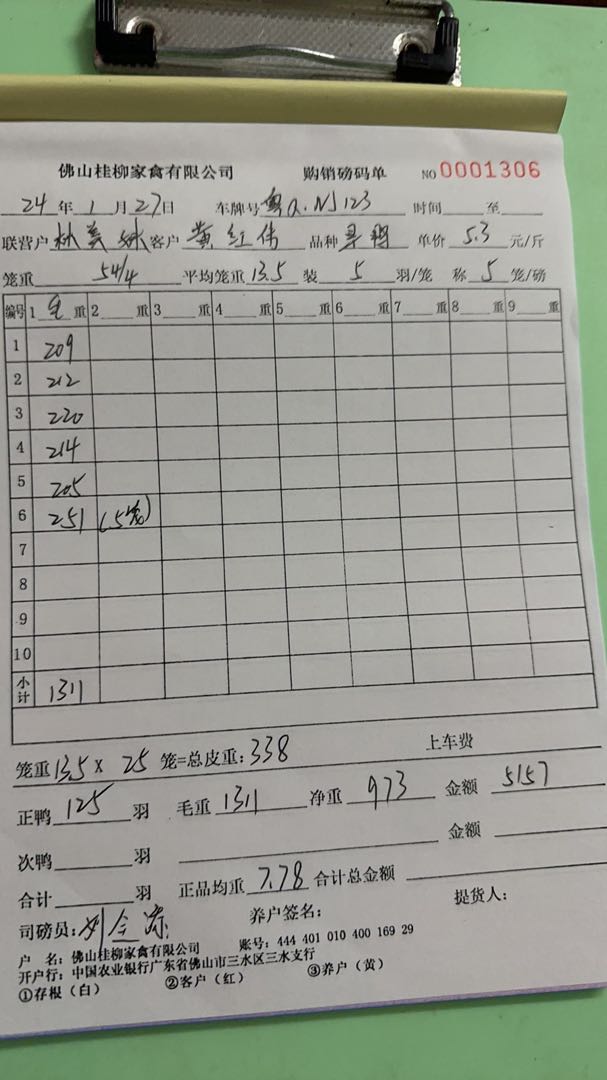 佛山桂柳家禽有限公司 购销磅码单 NO 0001306
24 年 1 月 27 日 车牌号 粤Q·NJ123 时间 至
联营户 林美 客户 黄红伟 品种 单价 5.3 元/斤
笼重 54/4 平均笼重 13.5 装 5 羽/笼 称 5 笼/磅
编号 1 毛 重 2 重 3 重 4 重 5 重 6 重 7 重 8 重 9 重
1 209
2 212
3 220
4 214
5 205
6 251 (5笼)
7
8
9
10
小计 1311
笼重 13.5 × 25 笼=总皮重: 338 上车费
正鸭 125 羽 毛重 1311 净重 973 金额 5157
次鸭 羽 金额
合计 羽 正品均重 7.78 合计总金额
司磅员: 刘 养户签名: 提货人:
户 名: 佛山桂柳家禽有限公司 账号: 444 401 010 400 169 29
开户行: 中国农业银行广东省佛山市三水区三水支行
①存根(白) ②客户(红) ③养户(黄)